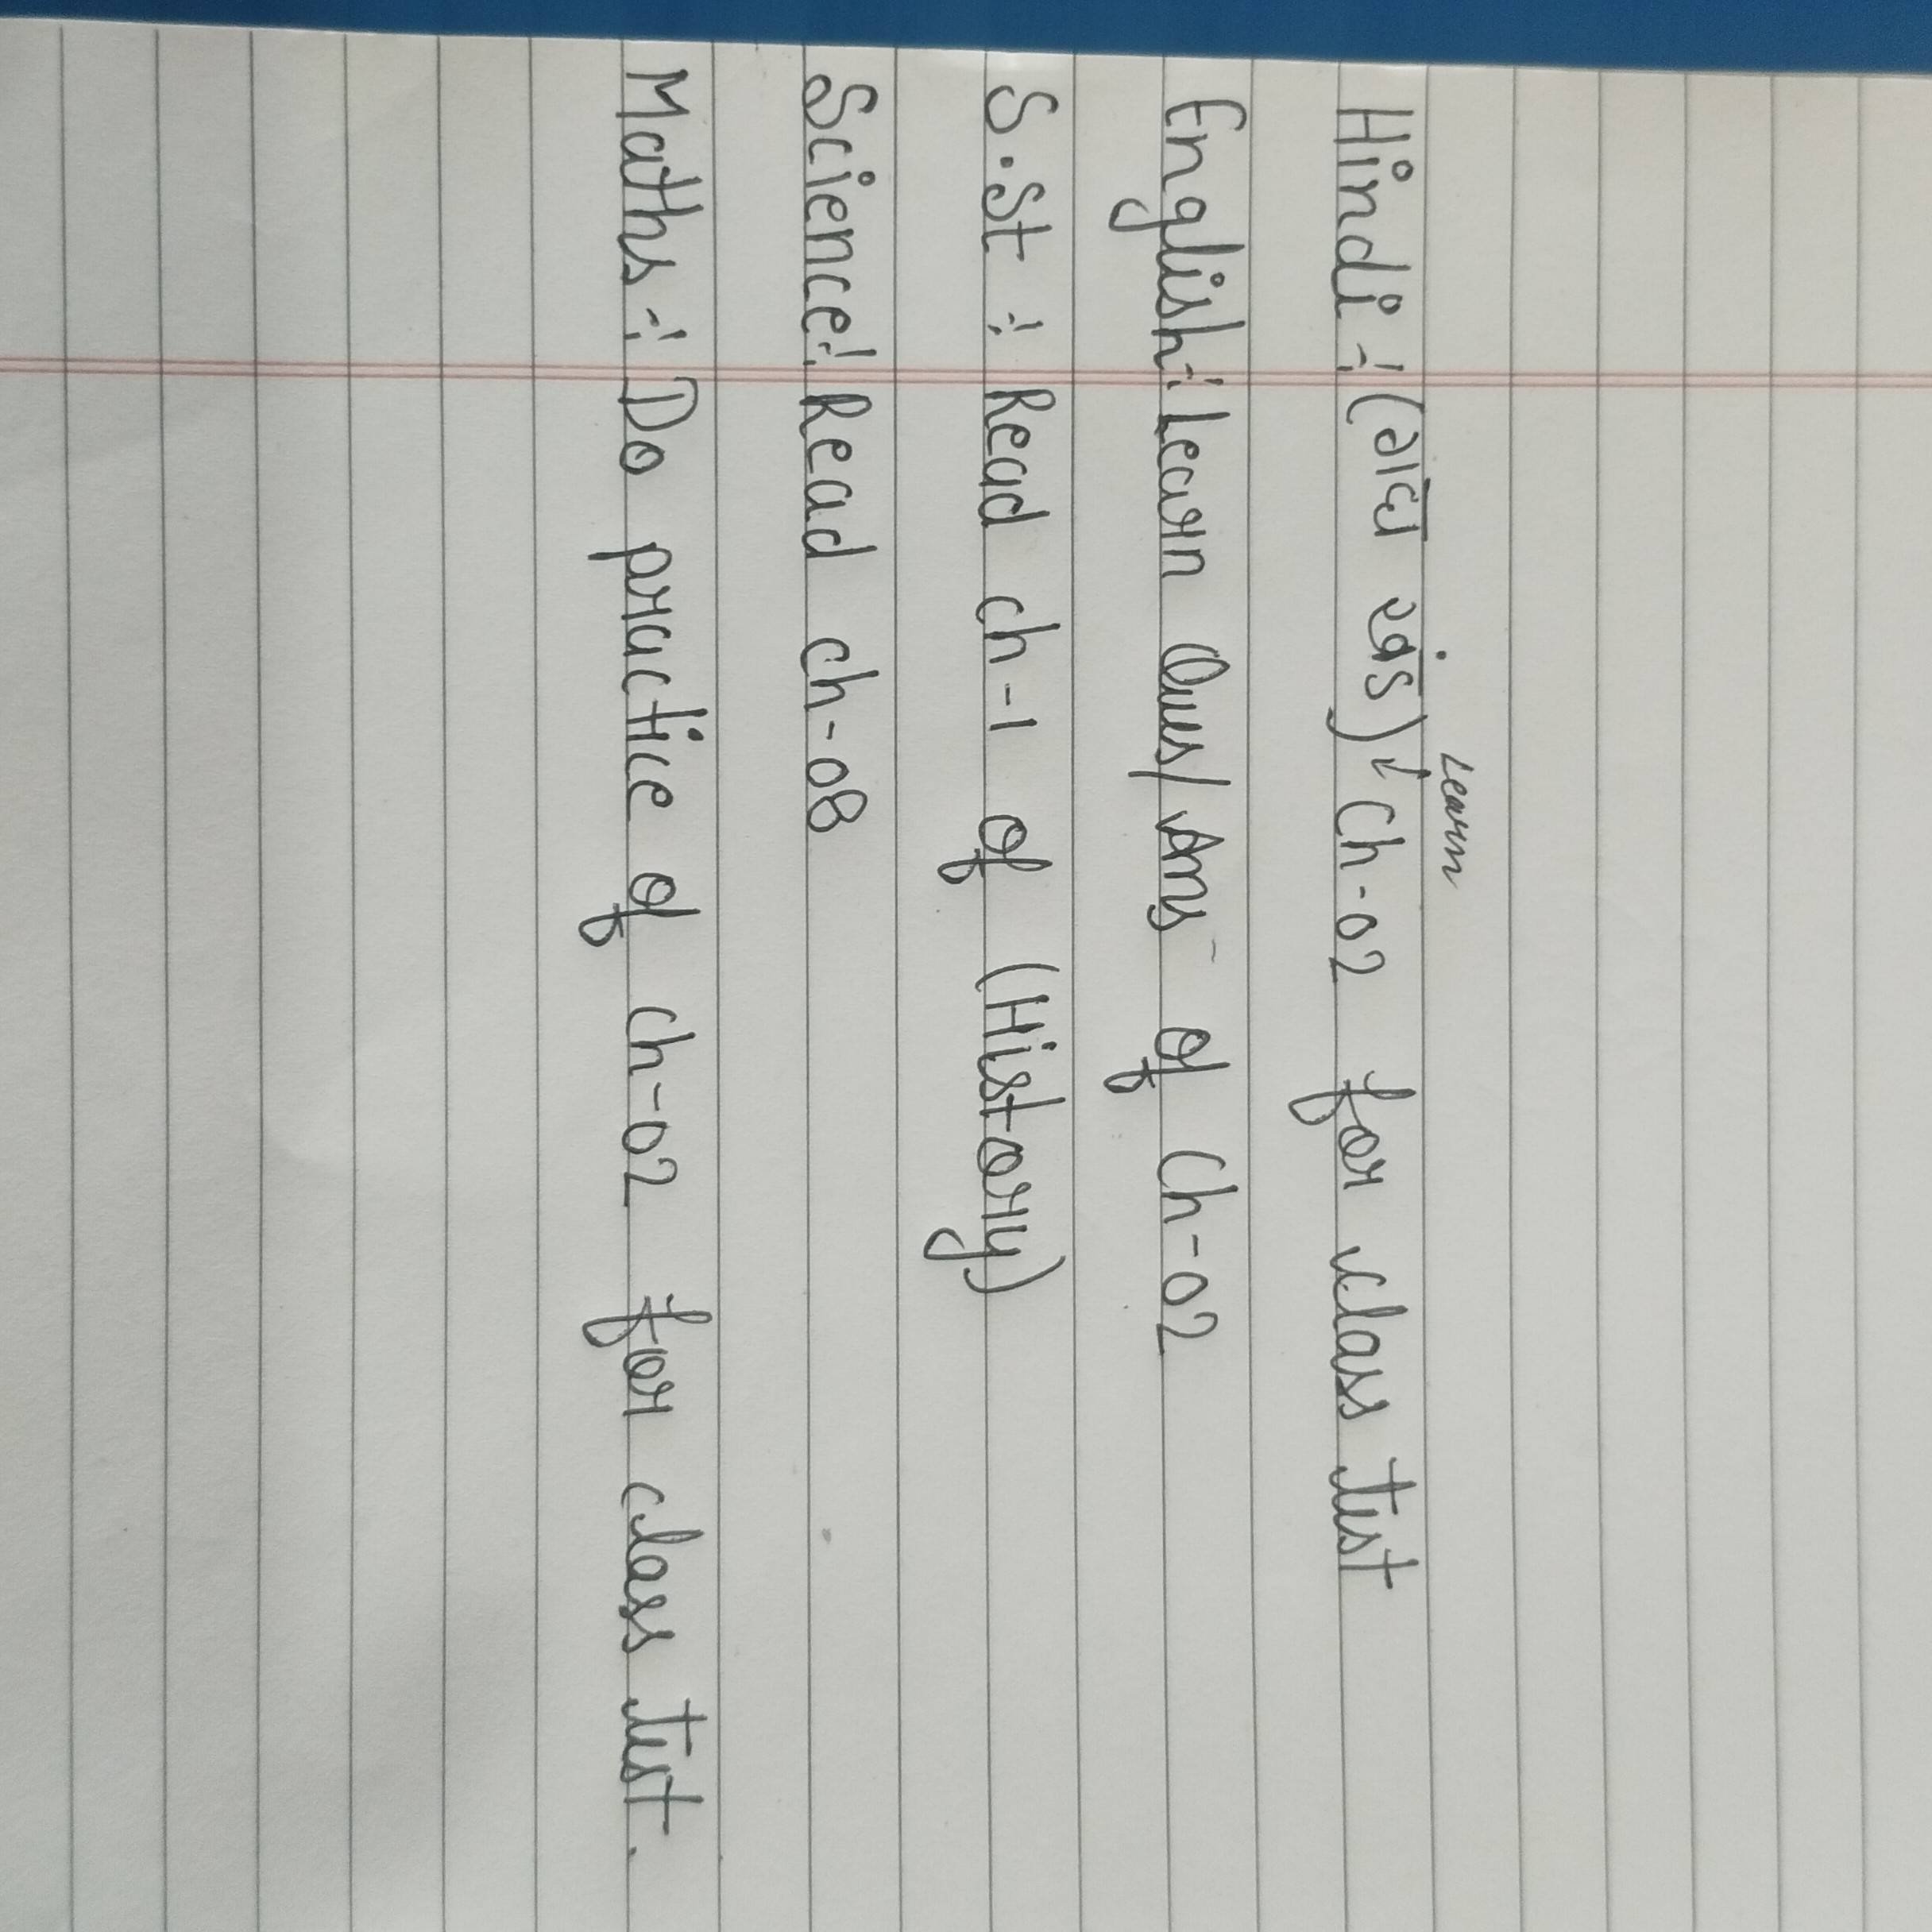 Hindi :- (गद्य खंड) Learn Ch-02 for class test
English:- Learn Ques/Ans of Ch-02
S.St :- Read ch-1 of (History)
Science:- Read ch-08
Maths :- Do practice of ch-02 for class test.